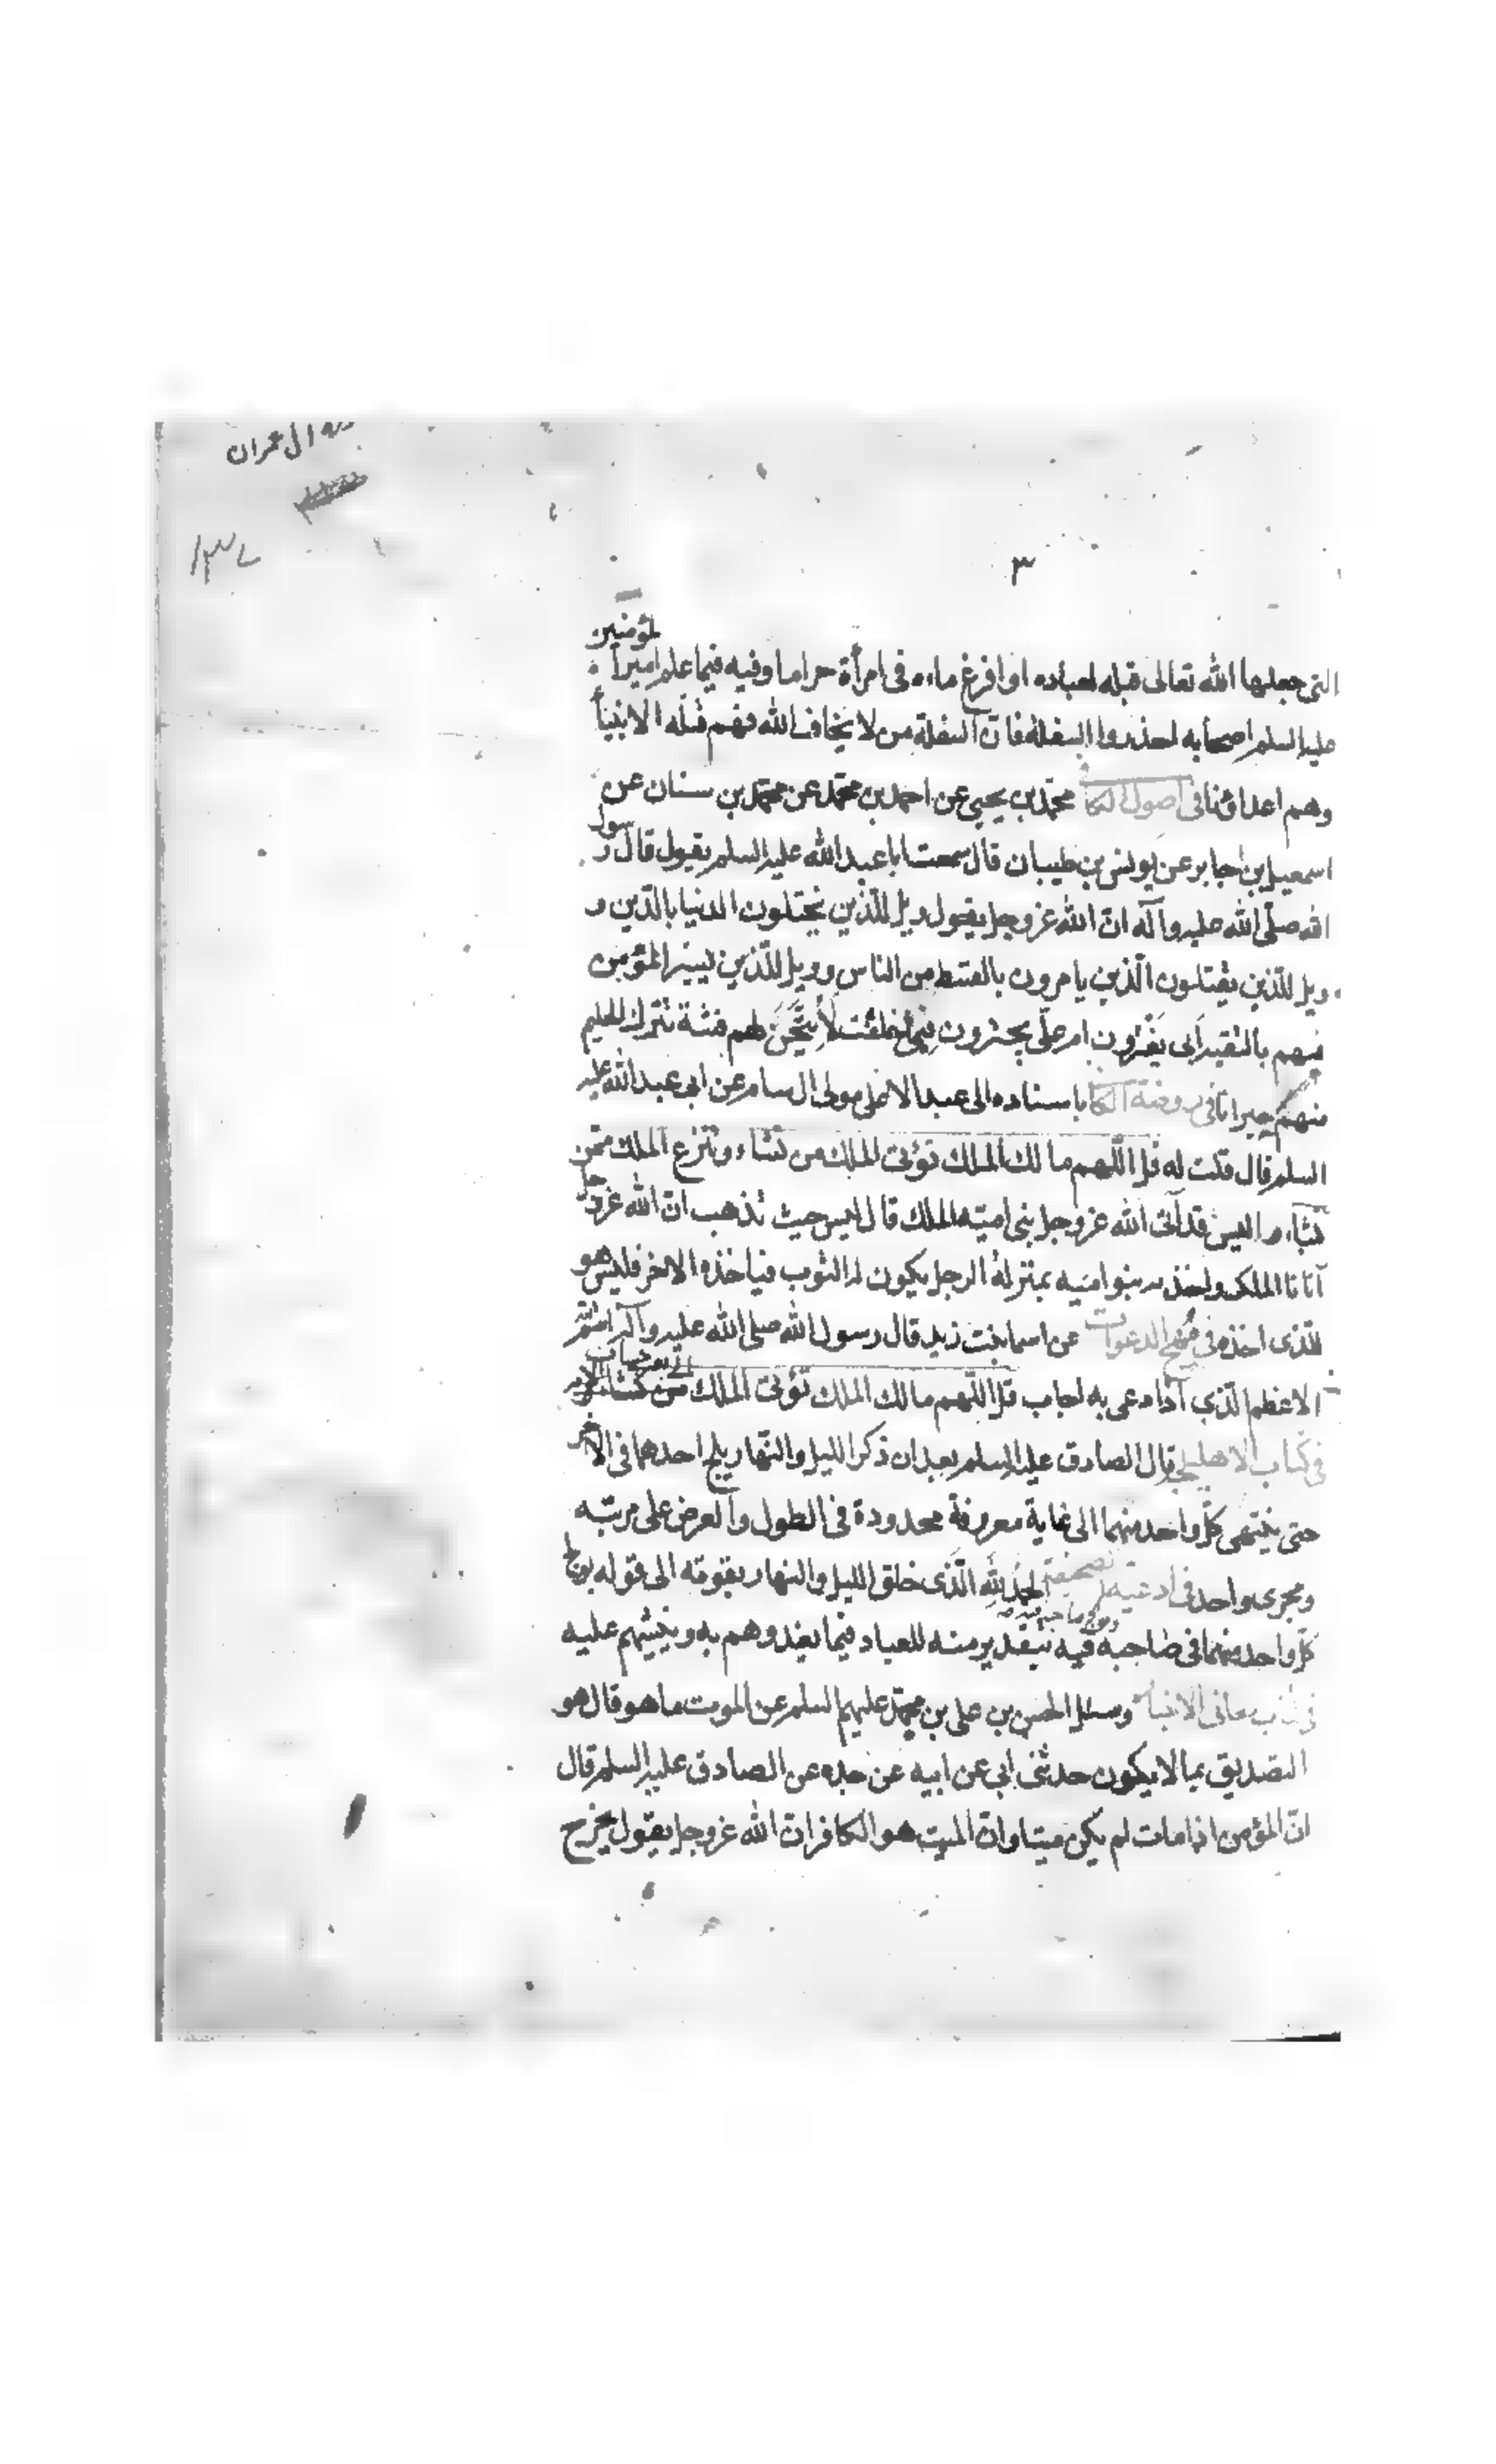 ال عمران
١٣٧
٣
التى جعلها الله تعالى قبله لعباده او افرغ ماءه فى امرأة حراما وفيه فيما علم امير المؤمنين
عليه السلم اصحابه احذروا السفلة فان السفلة من لا يخاف الله فهم قتله الانبياء
وهم اعداؤنا فى اصول الكا محمد بن يحيى عن احمد بن محمد عن محمد بن سنان عن
اسمعيل بن جابر عن يونس بن ظبيان قال سمعت ابا عبد الله عليه السلم يقول قال رسول
الله صلى الله عليه وآله ان الله عز وجل يقول ويل للذين يختلون الدنيا بالدين و
ويل للذين يقتلون الذين يامرون بالقسط من الناس وويل للذين يسير المؤمن
فيهم بالتقيه ابى يغترون ام على يجترؤن فبى حلفت لأتيحن لهم فتنة تترك الحليم
منهم حيرانا فى روضة الكا باسناده الى عبد الاعلى مولى ال سام عن ابى عبد الله عليه
السلم قال قلت له قل اللهم مالك الملك تؤتى الملك من تشاء وتنزع الملك ممن
تشاء اليس قد آتى الله عز وجل بنى اميه الملك قال ليس حيث تذهب ان الله عز وجل
آتانا الملك واخذته بنو اميه بمنزلة الرجل يكون له الثوب فياخذه الاخر فليس هو
للذى اخذه فى مهج الدعوات عن اسما بنت زيد قال رسول الله صلى الله عليه وآله اسم الله
الاعظم الذى اذا دعى به اجاب قل اللهم مالك الملك تؤتى الملك من تشاء الى بغير حساب
فى كتاب الاهليلجه قال الصادق عليه السلم بعد ان ذكر الليل والنهار يلج احدهما فى الاخر
حتى ينتهى كل واحد منهما الى غاية معروفة محدودة فى الطول والعرض على مرتبه
ومجرى واحد فى ادعيه صحيفة الحمد لله الذى خلق الليل والنهار بقوته الى قوله يولج
كل واحد منهما فى صاحبه ويولج صاحبه فيه بتقدير منه للعباد فيما يغذوهم به وينشئهم عليه
فى كتاب معانى الاخبار وسئل الحسن بن على بن محمد عليهم السلم عن الموت ما هو قال هو
التصديق بما لا يكون حدثنى ابى عن ابيه عن جده عن الصادق عليه السلم قال
ان المؤمن اذا مات لم يكن ميتا وان الميت هو الكافر ان الله عز وجل يقول يخرج